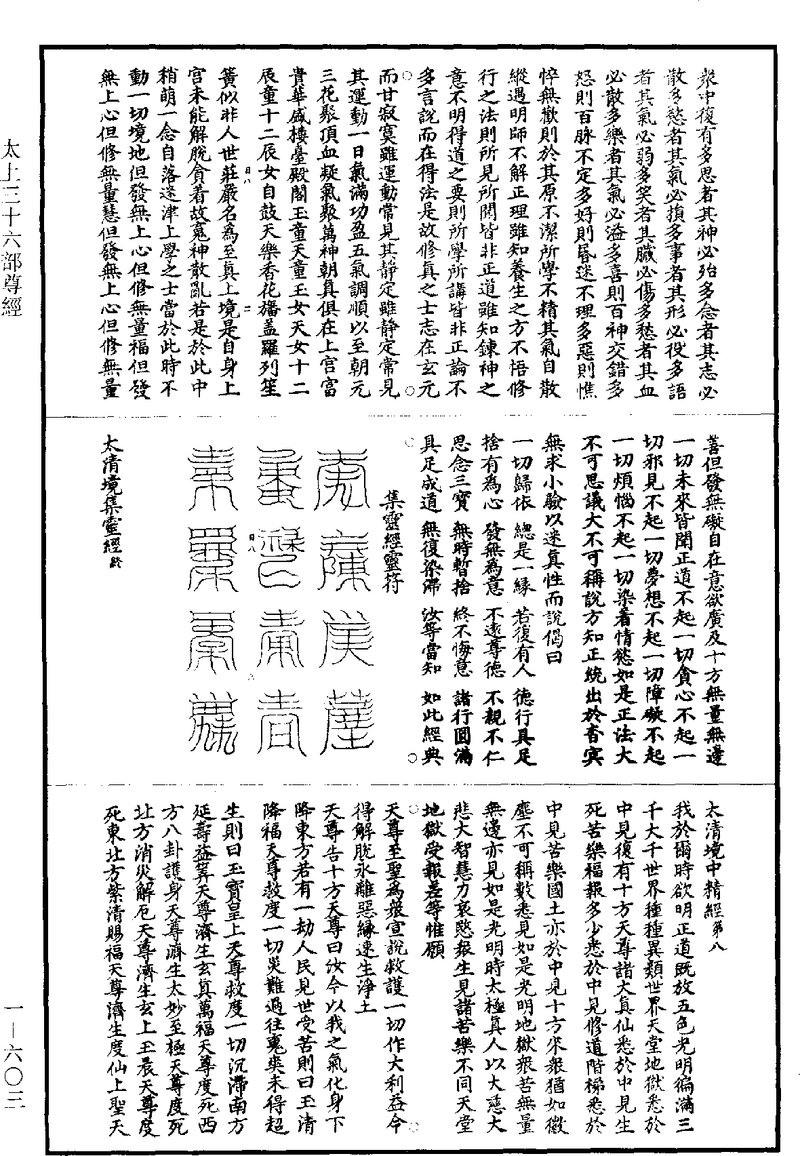 太上三十六部尊經
衆中復有多思者其神必殆多念者其志必
散多愁者其氣必損多事者其形必役多語
者其氣必弱多笑者其臟必傷多愁者其血
必散多樂者其氣必溢多喜則百神交錯多
怒則百脉不定多好則昏迷不理多惡則憔
悴無歡則於其原不潔所學不精其氣自散
縱遇明師不解正理雖知養生之方不悟修
行之法則所見所聞皆非正道雖知鍊神之
意不明得道之要則所學所講皆非正論不
多言說而在得法是故修真之士志在玄元
而甘寂寞雖運動常見其靜定雖靜定常見
其運動一日氣滿功盈五氣調順以至朝元
三花聚頂血凝氣聚萬神朝真俱在上宮富
貴華盛樓臺殿閣玉童天童玉女天女十二
辰童十二辰女自鼓天樂香花旛蓋羅列笙
簧似非人世莊嚴名為至真上境是自身上
宮未能解脫貪着故冤神散亂若是於此中
稍萌一念自落迷津上學之士當於此時不
動一切境地但發無上心但修無量福但發
無上心但修無量慧但發無上心但修無量
善但發無礙自在意欲廣及十方無量無邊
一切未來皆聞正道不起一切貪心不起一
切邪見不起一切夢想不起一切障礙不起
一切煩惱不起一切染着情慾如是正法大
不可思議大不可稱說方知正統出於杳冥
無求小驗以迷真性而說偈曰
一切歸依 總是一緣 若復有人 德行具足
捨有為心 發無為意 不遠尊德 不親不仁
思念三寶 無時暫捨 終不悔意 諸行圓滿
具足成道 無復染滯 汝等當知 如此經典
集靈經靈符
太清境集靈經終
太清境中精經第八
我於爾時欲明正道既放五色光明徧滿三
千大千世界種種異類世界天堂地獄悉於
中見復有十方天尊諸大真仙悉於中見生
死苦樂福報多少悉於中見修道階梯悉於
中見苦樂國土亦於中見十方來衆猶如微
塵不可稱數悉見如是光明地獄衆苦無量
無邊亦見如是光明時太極真人以大慈大
悲大智慧力哀愍衆生見諸苦樂不同天堂
地獄受報差等惟願
天尊至聖為衆宣說救護一切作大利益令
得解脫永離惡緣速生淨土
天尊告十方天尊曰汝今以我之氣化身下
降東方若有一劫人民見世受苦則曰玉清
降福天尊救度一切災難過往冤爽未得超
生則曰玉寶皇上天尊救度一切沉滯南方
延壽益筭天尊濟生玄真萬福天尊度死西
方八卦護身天尊濟生太妙至極天尊度死
北方消災解厄天尊濟生玄上玉晨天尊度
死東北方紫清賜福天尊濟生度仙上聖天
一—六〇三